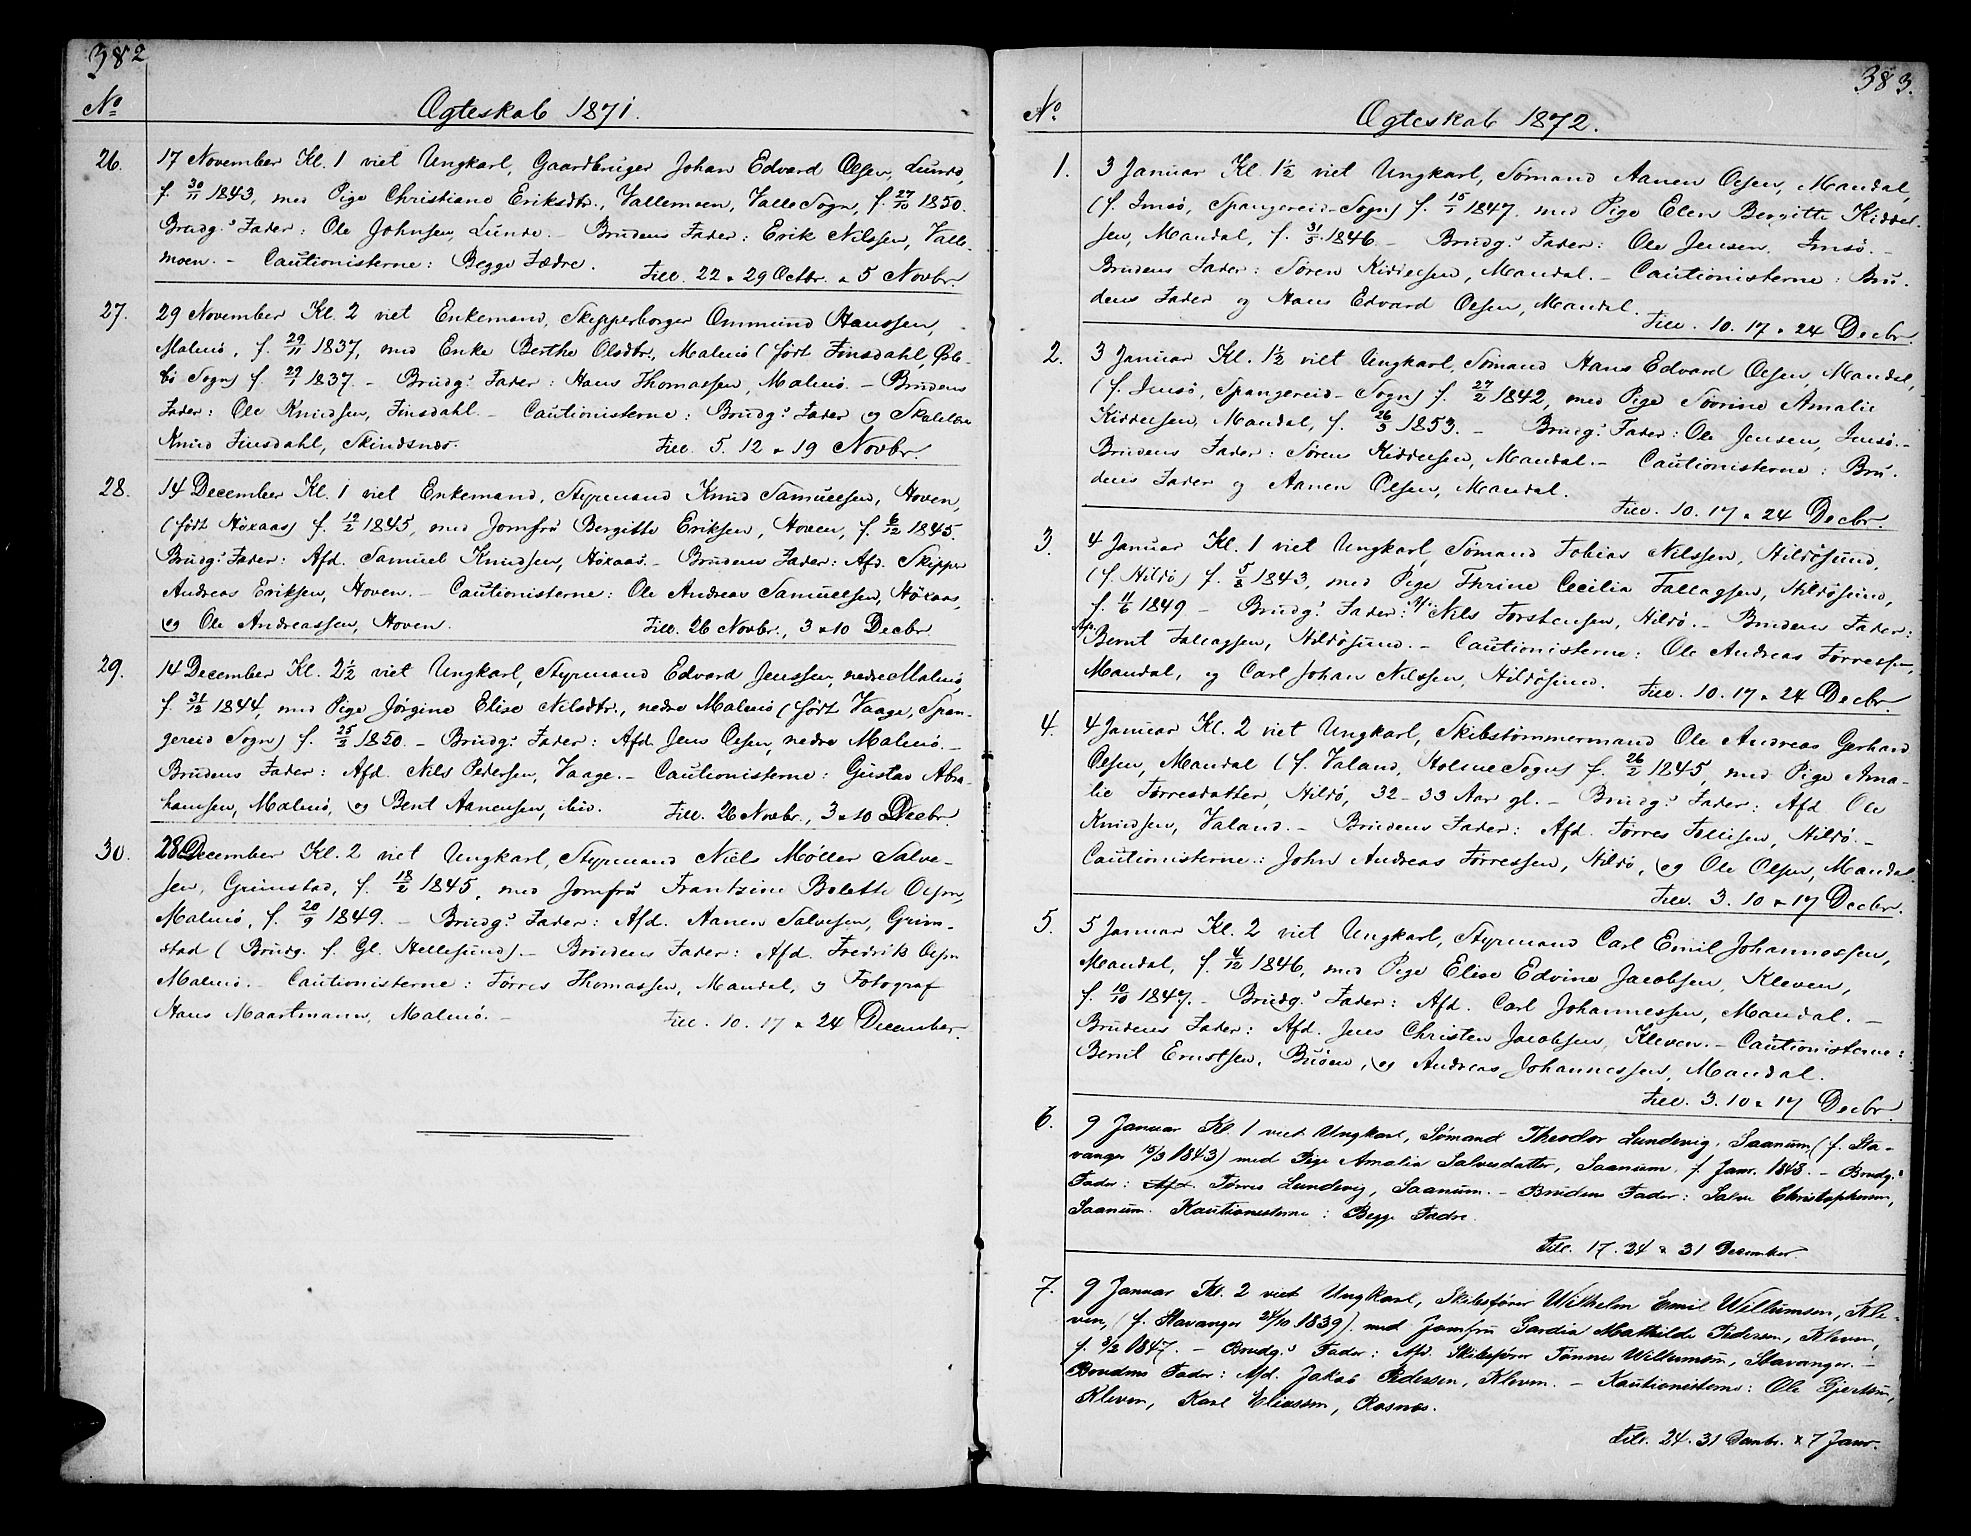 382
No
Ægteskab 1871.
26.
17 November Kl. 1 viet Ungkarl, Gaardbruger Johan Edvard Olsen, Lunde,
f. 30/11 1843, med Pige Christiane Eriksdtr., Vallemoen, Valle Sogn, f. 27/10 1850.
Brudg.s Fader: Ole Johnsen, Lunde. – Brudens Fader: Erik Nilssen, Valle-
moen. – Cautionisterne: Begge Fædre.
Till. 22 & 29 Octbr. & 5 Novbr.
27.
29 November Kl. 2 viet Enkemand, Skipperborger Ommund Hanssen,
Malmö, f. 29/11 1837, med Enke Berthe Olsdtr., Malmö (født Finsdahl, Øsle-
bö Sogn) f. 29/1 1837. – Brudg.s Fader: Hans Thomassen, Malmö. – Brudens
Fader: Ole Knudsen, Finsdahl. – Cautionisterne: Brudg.s Fader og
Knud Finsdahl, Skindsnæs.
Till. 5. 12 & 19 Novbr.
28.
14 December Kl. 1 viet Enkemand, Styrmand Knud Samuelsen, Hoven,
(født Höxaas) f. 19/2 1845, med Jomfru Bergitte Eriksen, Hoven, f. 6/12 1845.
Brudg.s Fader: Afd. Samuel Knudsen, Höxaas. – Brudens Fader: Afd. Skipper
Andreas Eriksen, Hoven. – Cautionisterne: Ole Andreas Samuelsen, Höxaas,
og Ole Andreassen, Hoven.
Till. 26 Novbr., 3 & 10 Decbr.
29.
14 December Kl. 2½ viet Ungkarl, Styrmand Edvard Jenssen, nedre Malmö,
f. 31/12 1844, med Pige Jörgine Elise Nilsdtr., nedre Malmö (født Vaage, Span-
gereid Sogn) f. 25/2 1850. – Brudg.s Fader: Afd. Jens Olsen, nedre Malmö. –
Brudens Fader: Afd. Nils Pedersen, Vaage. – Cautionisterne: Gustav Abra-
hamsen, Malmö, og Bent Aanensen, ibid.
Till. 26 Novbr., 3 & 10 Decbr.
30.
28 December Kl. 2 viet Ungkarl, Styrmand Niels Møller Salve-
sen, Grimstad, f. 18/2 1845, med Jomfru Frantzine Bolette Olsen,
Malmö, f. 20/9 1849. – Brudg.s Fader: Afd. Aanen Salvesen, Grim-
stad (Brudg. f. Gl. Hellesund). – Brudens Fader: Afd. Fredrik Olsen
Malmö. – Cautionisterne: Tørres Thomassen, Mandal, og Fotograf
Hans Maartmann, Malmö. –
Till. 10. 17 & 24 December.
383.
No.
Ægteskab 1872.
1.
3 Januar Kl. 1½ viet Ungkarl, Sømand Aanen Olsen, Mandal,
(f. Imsö, Spangereid-Sogn) f. 15/1 1847, med Pige Elen Bergitte Kiddel-
sen, Mandal, f. 31/5 1846 – Brudg.s Fader: Ole Jensen, Imsö. –
Brudens Fader: Sören Kiddelsen, Mandal. – Cautionisterne: Bru-
dens Fader og Hans Edvard Olsen, Mandal.
Till. 10. 17 & 24 Decbr.
2.
3 Januar Kl. 1½ viet Ungkarl, Sømand Hans Edvard Olsen, Mandal,
(f. Imsö, Spangereid-Sogn) f. 27/2 1842, med Pige Sörine Amalie
Kiddelsen, Mandal, f. 26/5 1853. – Brudg.s Fader: Ole Jensen, Imsö. –
Brudens Fader: Sören Kiddelsen, Mandal. – Cautionisterne: Bru-
dens Fader og Aanen Olsen, Mandal.
Till. 10. 17 & 24 Decbr.
3.
4 Januar Kl. 1 viet Ungkarl, Sømand Tobias Nilssen, Hildösund,
(f. Hildö) f. 5/8 1843, med Pige Thrine Cecilia Tallagsen, Hildösund,
f. 11/6 1849 – Brudg.s Fader: Nils Torstensen, Hildö. – Brudens Fader:
Afd. Bernt Tallagsen, Hildösund. – Cautionisterne: Ole Andreas Tørressen,
Mandal, og Carl Johan Nilssen, Hildösund.
Till. 10. 17 & 24 Decbr.
4.
4 Januar Kl. 2 viet Ungkarl, Skibstømmermand Ole Andreas Gerhard
Olsen, Mandal (f. Valand, Holme Sogn) f. 26/2 1845, med Pige Ama-
lie Tørresdatter, Hildö, 32–33 Aar gl. – Brudg.s Fader: Afd. Ole
Knudsen, Valand. – Brudens Fader: Afd. Tørres Tollisen, Hildö. –
Cautionisterne: John Andreas Tørressen, Hildö, og Ole Olsen, Mandal.
Till. 3. 10 & 17 Decbr.
5.
5 Januar Kl. 2 viet Ungkarl, Styrmand Carl Emil Johannessen,
Mandal, f. 4/12 1846, med Pige Elise Edvine Jacobsen, Kleven,
f. 10/10 1847. – Brudg.s Fader: Afd. Carl Johannessen, Mandal. –
Brudens Fader: Afd. Jens Christen Jacobsen, Kleven. – Cautionisterne:
Bernt Ernstsen, Buöen, og Andreas Johannessen, Mandal.
Till. 3. 10 & 17 Decbr
6.
9 Januar Kl. 1 viet Ungkarl, Sømand Theodor Lundevig, Saanum, (f. Sta-
vanger 15/3 1843) med Pige Amalia Salvesdatter, Saanum, f. Janr. 1848. – Brudg.s
Fader: Afd. Tørres Lundevig, Saanum. – Brudens Fader: Salve Christophersen,
Saanum. Kautionisterne: Begge Fædre.
Till. 17. 24 & 31 December.
7.
9 Januar Kl. 2 viet Ungkarl, Skibsfører Wilhelm Emil Willumsen, Kle-
ven, (f. Stavanger 24/10 1839) med Jomfru Gardia Mathilde Pedersen, Kleven,
f. 3/2 1847. – Brudg.s Fader: Afd. Skibsfører Tønnes Willumsen, Stavanger. –
Brudens Fader: Afd. Jakob Pedersen, Kleven. – Kautionisterne: Ole Gjertsen,
Kleven, Karl Eliassen, Rosnæs.
Till. 24. 31 Decbr. & 7 Janr.